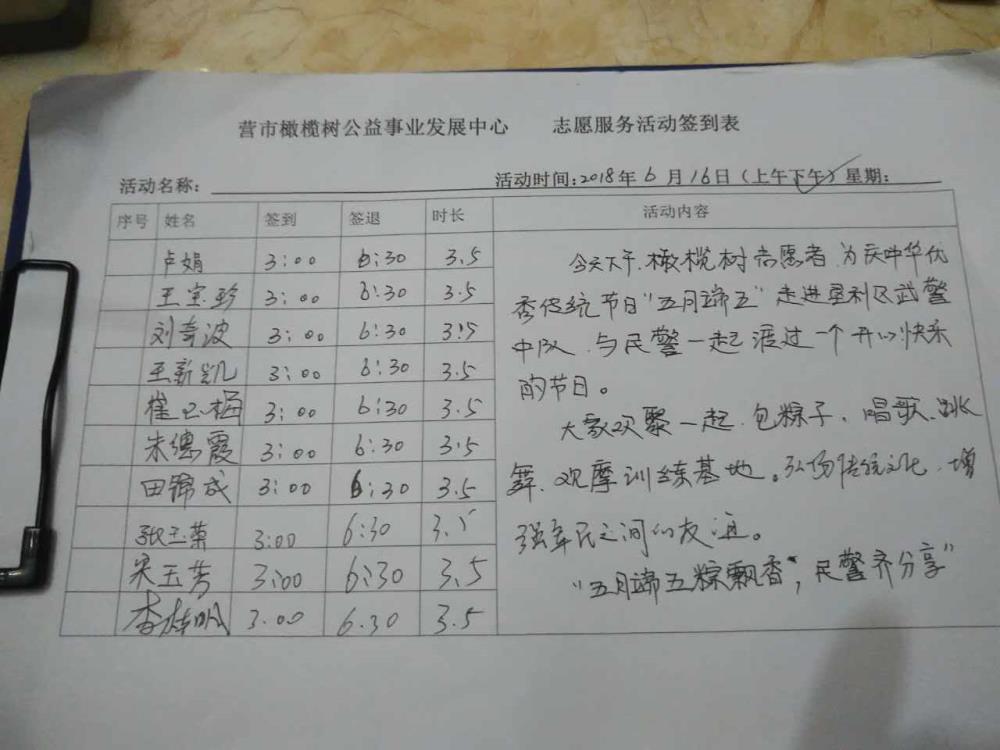 营市橄榄树公益事业发展中心 志愿服务活动签到表
活动名称: 活动时间:2018年6月16日(上午下午)星期:
序号 姓名 签到 签退 时长 活动内容
卢娟 3:00 6:30 3.5
王宝珍 3:00 6:30 3.5
刘奇波 3:00 6:30 3.5
王新凯 3:00 6:30 3.5
崔 梅 3:00 6:30 3.5
朱德霞 3:00 6:30 3.5
田锦成 3:00 6:30 3.5
张玉荣 3:00 6:30 3.5
宋玉芳 3:00 6:30 3.5
李 明 3.00 6.30 3.5
今天下午,橄榄树志愿者,为庆中华优
秀传统节日“五月端五”走进垦利区武警
中队,与民警一起渡过一个开心快乐
的节日。
大家欢聚一起,包粽子、唱歌、跳
舞、观摩训练基地。弘扬传统文化,增
强军民之间的友谊。
“五月端五粽飘香,民警齐分享”